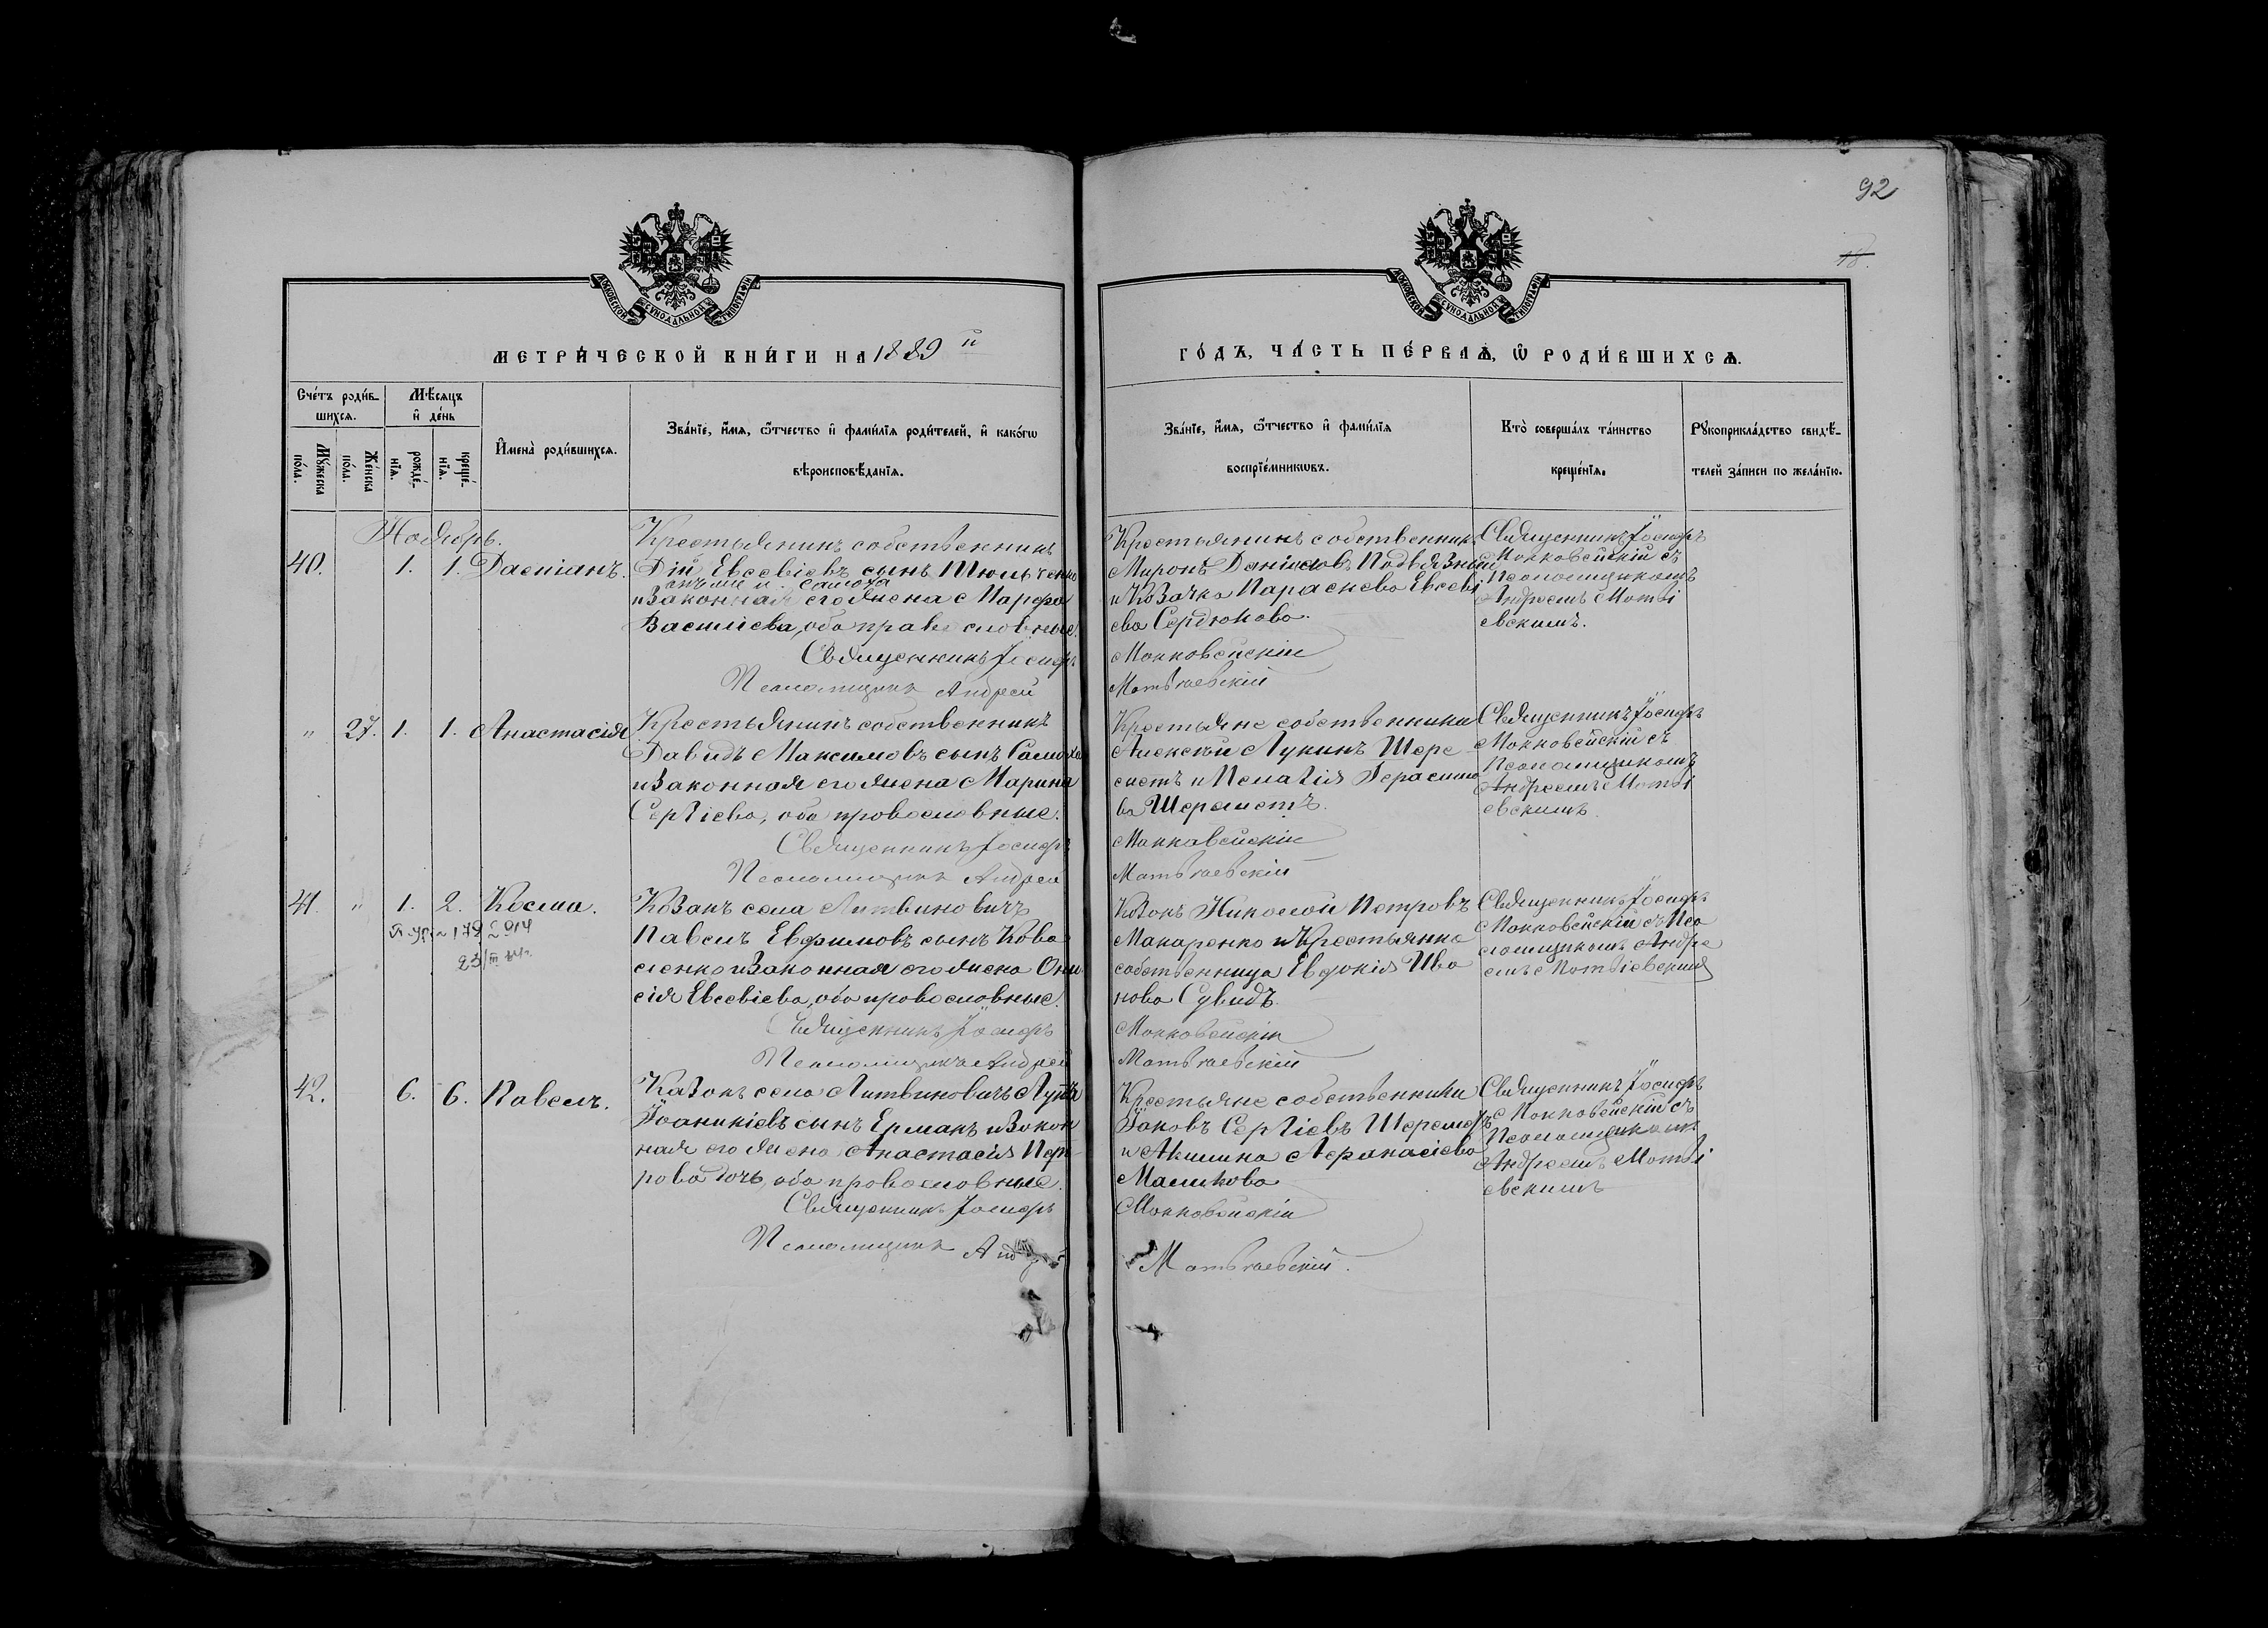 92
18.
МЕТРИЧЕСКОЙ КНИГИ НА 1889 й
ГОДЪ, ЧАСТЬ ПЕРВАЯ, Ѡ РОДИВШИХСЯ.
Счетъ родив-
шихся.
Мѣсяцъ
и день
Мужеска
пола.
Женска
пола.
рожде-
нія.
креще-
нія.
Имена родившихся.
Званіе, имя, ѿтчество и фамилія родителей, и какогѡ
вѣроисповѣданія.
Званіе, имя, ѿтчество и фамилія
воспріемникѡвъ.
Кто совершалъ таинство
крещенія.
Рукоприкладство свидѣ-
телей записи по желанію.
Ноябрь.
40. 1. 1. Даміанъ.
Крестьянинъ собственникъ
Дій Евсевіевъ сынъ
онъ же и Самоха
и Законная его жена Марфа
Василіева, оба православные.
Священникъ Іосифъ
Псаломщикъ Андрей
Крестьянинъ собственникъ
Миронъ Даніиловъ Подвязный
и Козачка Параскева Евсеві
ева Сердюкова.
Маккавейскій
Матѳаевскій
Священникъ Іосифъ
Маккавейскій съ
Псаломщикомъ
Андреемъ Матѳі
евскимъ.
" 27. 1. 1. Анастасія
Крестьянинъ собственникъ
Давидъ Максимовъ сынъ Самоха
и Законная его жена Марина
Сергіева, оба православные.
Священникъ Іосифъ
Псаломщикъ Андрей
Крестьяне собственники
Алексѣй Лукинъ Шере
метъ и Пелагія Герасимо
ва Шереметъ.
Маккавейскій
Матѳаевскій
Священникъ Іосифъ
Маккавейскій съ
Псаломщикомъ
Андреемъ Матѳі
евскимъ.
41. " 1. 2. Косма.
179 914
23/III
Козакъ села Литвиновичъ
Павелъ Евфимовъ сынъ Кова
ленко и Законная его жена Они
сія Евсевіева, оба православные.
Священникъ Іосифъ
Псаломщикъ Андрей
Козакъ Николай Петровъ
Макаренко и Крестьянка
собственница Евдокія Ива
нова Сувидъ.
Маккавейскій
Матѳаевскій
Священникъ Іосифъ
Маккавейскій съ Пса
ломщикомъ Андре
емъ Матѳіевскимъ
42. 6. 6. Павелъ.
Козакъ села Литвиновичъ Лука
Іоаникіевъ сынъ Ермакъ и Закон
ная его жена Анастасія Пет
рова дочь, оба православные.
Священникъ Іосифъ
Псаломщикъ Андрей
Крестьяне собственники
Іаковъ Сергіевъ Шереметъ
и Акилина Аѳанасіева
Машкова
Маккавейскій
Матѳаевскій.
Священникъ Іосифъ
Маккавейскій съ
Псаломщикомъ
Андреемъ Матѳі
евскимъ